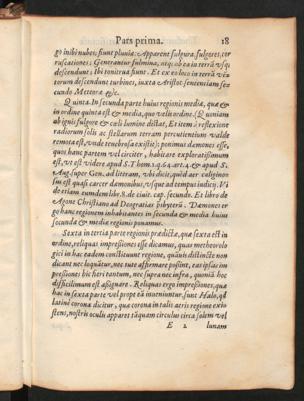 Pars prima. 18
go inibi nubes; fiunt pluuiæ: Apparent fulgura, fulgores, cor
ruscationes: Generantur fulmina, atq; ob ea in terrã vsq;
descendunt: Ibi tonitrua fiunt. Et ex eo loco in terrã
torum descendunt turbines, iuxta Aristot. sententiam se
cundo Meteora &c.
Quinta. In secunda parte huius regionis mediæ, quæ &
in ordine quinta est & media, quo velit ordine. (Quoniam
ab ignis fulgore & cœli lumine distat, Et item à reflexione
radiorum solis ac stellarum terram percutientium valde
remota est, vnde tenebrosa existit); ponimus dæmones esse,
quos hanc partem vel circiter, habitare exploratissimum
est, vt est videre apud S. Thom. 1. q. 64. art. 4. & apud S.
Aug. super Gen. ad literam, vbi dicit, quòd aer caligino
sus est quasi carcer dæmonibus, vsque ad tempus iudicij. Vi
de etiam eundem lib. 8. de ciuit. cap. secundo. Et libro de
Agone Christiano ad Deogratias p̃sbyterũ. Dæmones er
go hanc regionem inhabitantes in secunda & media huius
secundæ & mediæ regionis ponamus.
Sexta in tertia parte regionis prædictæ, quæ sexta est in
ordine, reliquas impressiones esse dicamus, quas metheorolo
gici in hac eadem constituunt regione, quàuis distinctè non
dicant nec loquãtur, nec rurè affirmare possint, eas ipsas im
pressiones hic fieri tantum, nec supra nec infra, quoniã hoc
difficillimum est assignare. Reliquas ergo impressiones, quæ
hac in sexta parte vel prope eã inueniuntur, sunt Halo, q̃d
latinè corona dicitur, quæ corona in talis aeris regione exis
stens, nostris oculis apparet tãquam circulus circa solem vel
E 2 lunam